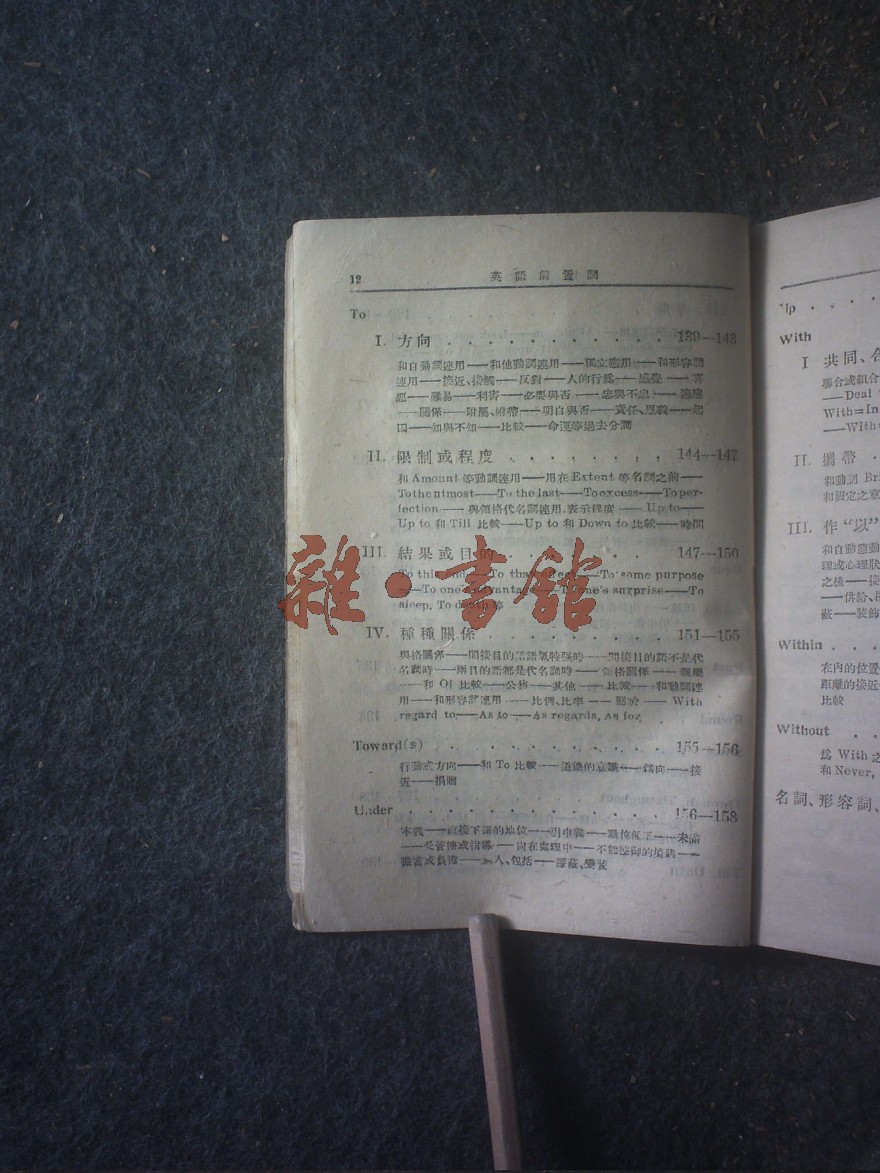 12 英語前置詞
To
I. 方向 . . . . . . . . . . . . 139—143
和自動詞連用——和他動詞連用——獨立應用——和形容詞
連用——接近、接觸——反對——人的行爲——感覺——善
惡——難易——利害——必要與否——忠與不忠——適應
——關係——附屬、紿帶——明白與否——責任、恩載——起
因——知與不知——比較——命運等過去分詞
II. 限制或程度 . . . . . . . . 144—147
和 Amount 等動詞連用——用在 Extent 等名詞之前——
To the utmost——To the last——To excess——To per-
fection——與領格代名詞連用,表示程度——Up to——
Up to 和 Till 比較——Up to 和 Down to 比較——時間
III. 結果或目的 . . . . . . 147—150
To this end——To that effect——To some purpose
——To one's advantage——To one's surprise——To
sleep, To death 等
IV. 種種關係 . . . . . . . . . 151—155
與格關係——間接目的語語氣特強時——間接目的語不是代
名詞時——兩目的語都是代名詞時——領格關係——親屬
——和 Of 比較——公務——其他——比較——和動詞連
用——和形容詞連用——比例、比率——關於——With
regard to——As to——As regards, As for
Toward(s) . . . . . . . . . . . . 155—156
行動或方向——和 To 比較——道德的意識——趨向——接
近——捐贈
Under . . . . . . . . . . . . . . 156—158
本義——直接下面的地位——引申義——職位低下——未滿
——受管轄或指導——尚在處理中——不能控御的境遇——
擔當或負擔——包括——
雜·書館
Up . . . .
With
I 共同、合
聯合或組合
——Deal
With=In
——With=
II. 攜帶 .
和動詞 Bri
和假定之意
III. 作“以”
和自動態動
理或心理狀
之後——接
——供給、
蔽——裝飾
Within . . .
在內的位置
距離的接近
比較
Without . .
爲 With 之
和 Never,
名詞、形容詞、